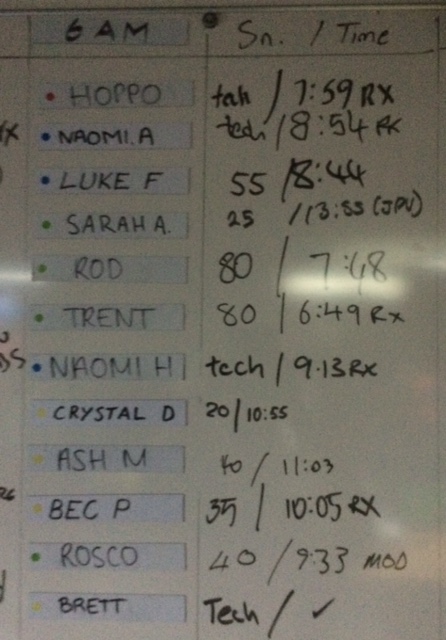 6 AM Sn. / Time
HOPPO tech / 7:59 RX
NAOMI.A tech / 8:54 RX
LUKE F 55 / 8:44
SARAH A. 25 / 13:55 (JPU)
ROD 80 / 7:48
TRENT 80 / 6:49 Rx
NAOMI H tech / 9.13 RX
CRYSTAL D 20 / 10:55
ASH M 40 / 11:03
BEC P 35 / 10:05 RX
ROSCO 40 / 9:33 MOD
BRETT Tech / ✓